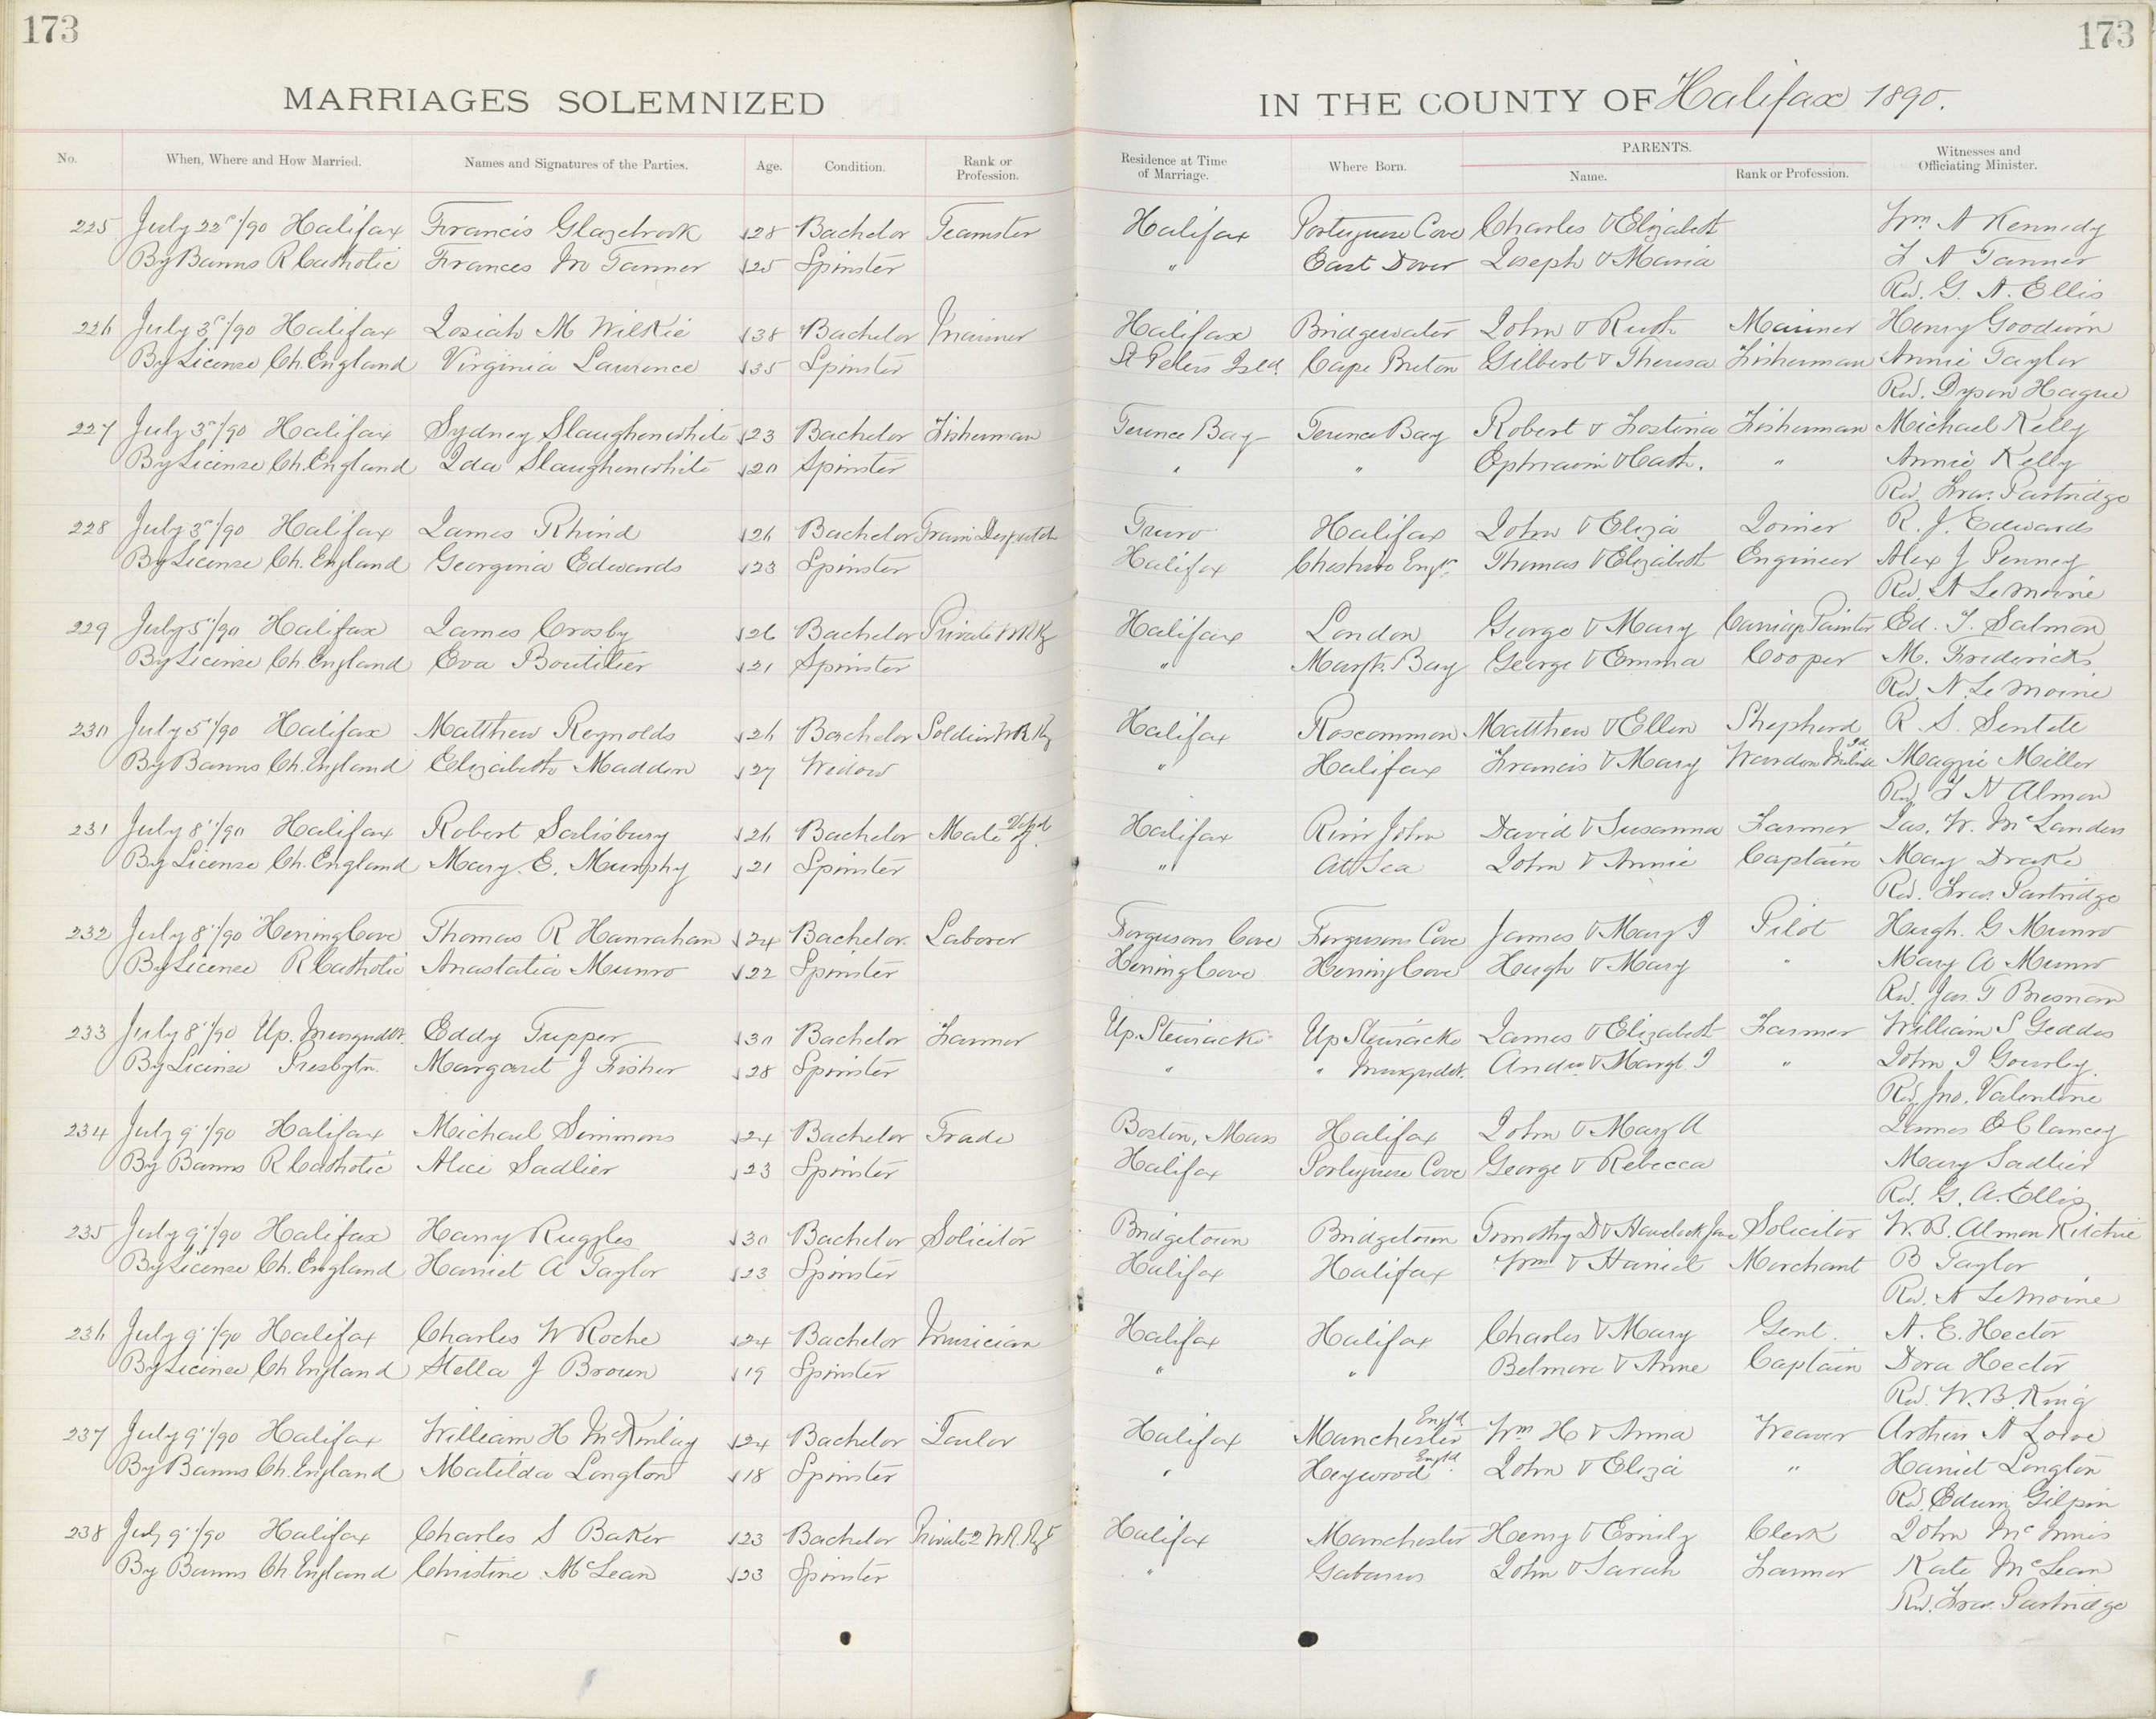 173
173
MARRIAGES SOLEMNIZED IN THE COUNTY OF Halifax 1890.
No. When, Where and How Married. Names and Signatures of the Parties. Age. Condition. Rank or Profession. Residence at Time of Marriage. Where Born. PARENTS. Name. Rank or Profession. Witnesses and Officiating Minister.
225 July 22nd/90 Halifax Francis Glazebrook 28 Bachelor Teamster Halifax Portuguese Cove Charles & Elizabeth Wm A Kennedy
By Banns R Catholic Frances M Tanner 25 Spinster " East Dover Joseph & Maria F A Tanner
Rev. G. A. Ellis
226 July 3rd/90 Halifax Josiah M Wilkie 38 Bachelor Mariner Halifax Bridgewater John & Ruth Mariner Henry Goodwin
By License Ch. England Virginia Lawrence 35 Spinster St Peters Isld. Cape Breton Gilbert & Theresa Fisherman Annie Taylor
Rev. Dyson Hague
227 July 3rd/90 Halifax Sydney Slaughenwhite 23 Bachelor Fisherman Terence Bay Terence Bay Robert & Fostina Fisherman Michael Kelly
By License Ch. England Ida Slaughenwhite 20 Spinster " " Ephriaim & Cath. " Annie Kelly
Rev. Fras. Partridge
228 July 3rd/90 Halifax James Rhind 26 Bachelor Train Despatch Truro Halifax John & Eliza Joiner R. J. Edwards
By License Ch. England Georgina Edwards 23 Spinster Halifax Cheshire Engd. Thomas & Elizabeth Engineer Alex J Penney
Rev. A LeMoine
229 July 5th/90 Halifax James Crosby 26 Bachelor Private W R Rg Halifax London George & Mary Carriage Painter Ed. T. Salmon
By License Ch. England Eva Boutilier 21 Spinster " Margts. Bay George & Emma Cooper M. Fredericks
Rev. A. LeMoine
230 July 5th/90 Halifax Matthew Reynolds 26 Bachelor Soldier W R Rg Halifax Roscommon Matthew & Ellen Shepherd R. S. Sentell
By Banns Ch. England Elizabeth Madden 27 Widow " Halifax Francis & Mary Warden Maggie Miller
Rev. F N Almon
231 July 8th/90 Halifax Robert Salisbury 26 Bachelor Mate Halifax River John David & Susanna Farmer Jas. W. McLanders
By License Ch. England Mary. E. Murphy 21 Spinster " At Sea John & Annie Captain May Drake
Rev. Fras. Partridge
232 July 8th/90 Herring Cove Thomas R Hanrahan 24 Bachelor Laborer Fergusons Cove Fergusons Cove James & Mary J Pilot Hugh. G Munro
By License R Catholic Anastatia Munro 22 Spinster Herring Cove Herring Cove Hugh & Mary " Mary A Munro
Rev. Jas. T Bresnan
233 July 8th/90 Up. Musquodt. Eddy Tupper 30 Bachelor Farmer Up. Stewiacke Up Stewiacke James & Elizabeth Farmer William S Geddes
By License Presbytn. Margaret J Fisher 28 Spinster " " Musqudt. Andw & Margt. J " John J Gourley.
Rev. Jno. Valentine
234 July 9th/90 Halifax Michael Simmons 24 Bachelor Trade Boston, Mass Halifax John & Mary A James E Clancey
By Banns R Catholic Alice Sadlier 23 Spinster Halifax Portuguese Cove George & Rebecca Mary Sadlier
Rev. G. A. Ellis
235 July 9th/90 Halifax Harry Ruggles 30 Bachelor Solicitor Bridgetown Bridgetown Timothy D & Havelock Jane Solicitor W. B. Almon Ritchie
By License Ch. England Harriet A Taylor 23 Spinster Halifax Halifax Wm & Harriet Merchant B Taylor
Rev. A LeMoine
236 July 9th/90 Halifax Charles W Roche 24 Bachelor Musician Halifax Halifax Charles & Mary Gent. A. E. Hector
By License Ch England Stella J Brown 19 Spinster " " Belmore & Anne Captain Dora Hector
Rev. W. B. King
237 July 9th/90 Halifax William H McKinlay 24 Bachelor Tailor Halifax Manchester Engld. Wm H & Anna Weaver Arthur A Lowe
By Banns Ch. England Matilda Longton 18 Spinster " Heywood Engld. John & Eliza " Harriet Longton
Rev. Edwin Gilpin
238 July 9th/90 Halifax Charles S Baker 23 Bachelor Private 2 W. R. Rgt Halifax Manchester Henry & Emily Clerk John McInnis
By Banns Ch England Christine McLean 23 Spinster " Gabarus John & Sarah Farmer Kate McLean
Rev. Fras. Partridge